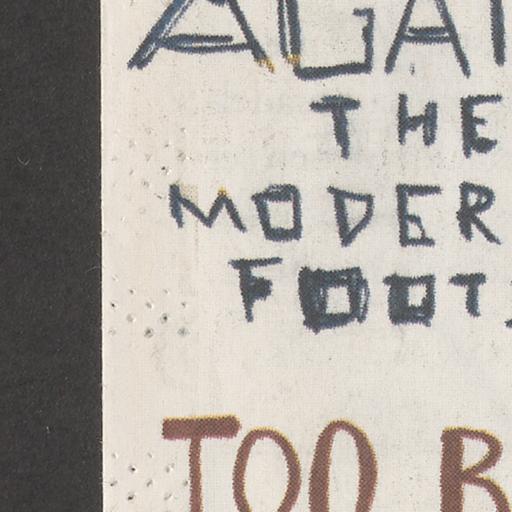 AGAI
THE
MODER
FOOT
TOO B